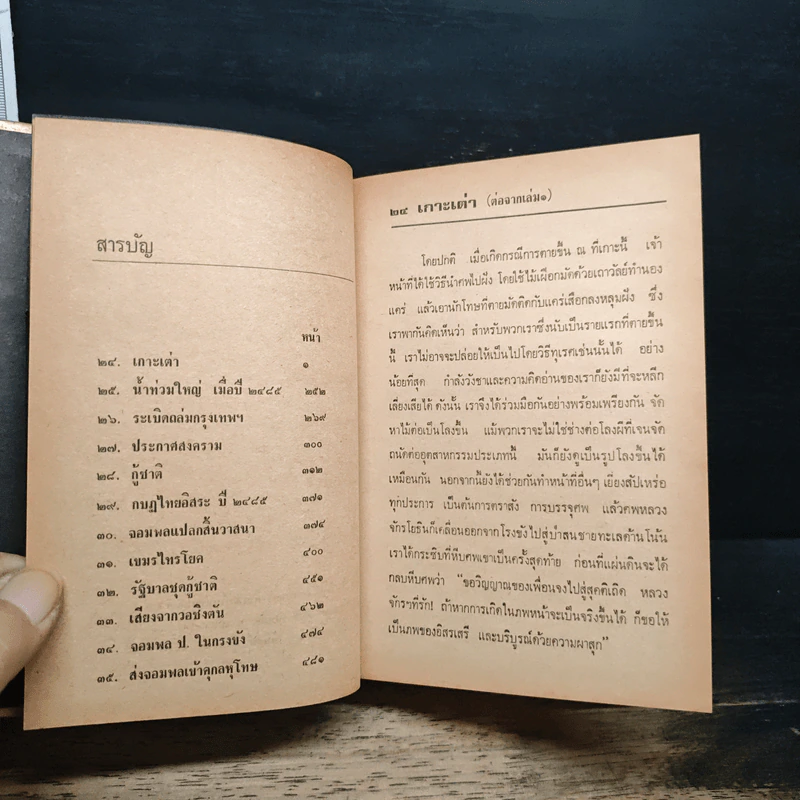 สารบัญ
หน้า
๒๔. เกาะเต่า ๑
๒๕. น้ำท่วมใหญ่ เมื่อปี ๒๔๘๕ ๒๕๒
๒๖. ระเบิดถล่มกรุงเทพฯ ๒๖๙
๒๗. ประกาศสงคราม ๓๐๐
๒๘. กู้ชาติ ๓๑๒
๒๙. กบฏไทยอิสระ ปี ๒๔๘๕ ๓๗๑
๓๐. จอมพลแปลกสิ้นวาสนา ๓๗๔
๓๑. เขมรไทรโยค ๔๐๐
๓๒. รัฐบาลชุดกู้ชาติ ๔๕๑
๓๓. เสียงจากวอชิงตัน ๔๖๒
๓๔. จอมพล ป. ในกรงขัง ๔๗๔
๓๕. ส่งจอมพลเข้าคุกลหุโทษ ๔๘๑
๒๔ เกาะเต่า (ต่อจากเล่ม๑)
โดยปกติ เมื่อเกิดกรณีการตายขึ้น ณ ที่เกาะนี้ เจ้า
หน้าที่ได้ใช้วิธีนำศพไปฝัง โดยใช้ไม้เผือกมัดด้วยเถาวัลย์ทำนอง
แคร่ แล้วเอานักโทษที่ตายมัดติดกับแคร่เสือกลงหลุมฝัง ซึ่ง
เราพากันคิดเห็นว่า สำหรับพวกเราซึ่งนับเป็นรายแรกที่ตายขึ้น
นี้ เราไม่อาจจะปล่อยให้เป็นไปโดยวิธีทุเรศเช่นนั้นได้ อย่าง
น้อยที่สุด กำลังวังชาและความคิดอ่านของเราก็ยังมีที่จะหลีก
เลี่ยงเสียได้ ดังนั้น เราจึงได้ร่วมมือกันอย่างพร้อมเพรียงกัน จัด
หาไม้ต่อเป็นโลงขึ้น แม้พวกเราจะไม่ใช่ช่างต่อโลงผีที่เจนจัด
ถนัดต่ออุตสาหกรรมประเภทนี้ มันก็ยังดูเป็นรูปโลงขึ้นได้
เหมือนกัน นอกจากนี้ยังได้ช่วยกันทำหน้าที่อื่นๆ เยี่ยงสัปเหร่อ
ทุกประการ เป็นต้นการตราสัง การบรรจุศพ แล้วศพหลวง
จักรโยธินก็เคลื่อนออกจากโรงขังไปสู่ป่าสนชายทะเลด้านโน้น
เราได้กระซิบที่หีบศพเขาเป็นครั้งสุดท้าย ก่อนที่แผ่นดินจะได้
กลบหีบศพว่า "ขอวิญญาณของเพื่อนจงไปสู่สุคติเถิด หลวง
จักรฯที่รัก! ถ้าหากการเกิดในภพหน้าจะเป็นจริงขึ้นได้ ก็ขอให้
เป็นภพของอิสรเสรี และบริบูรณ์ด้วยความผาสุก"